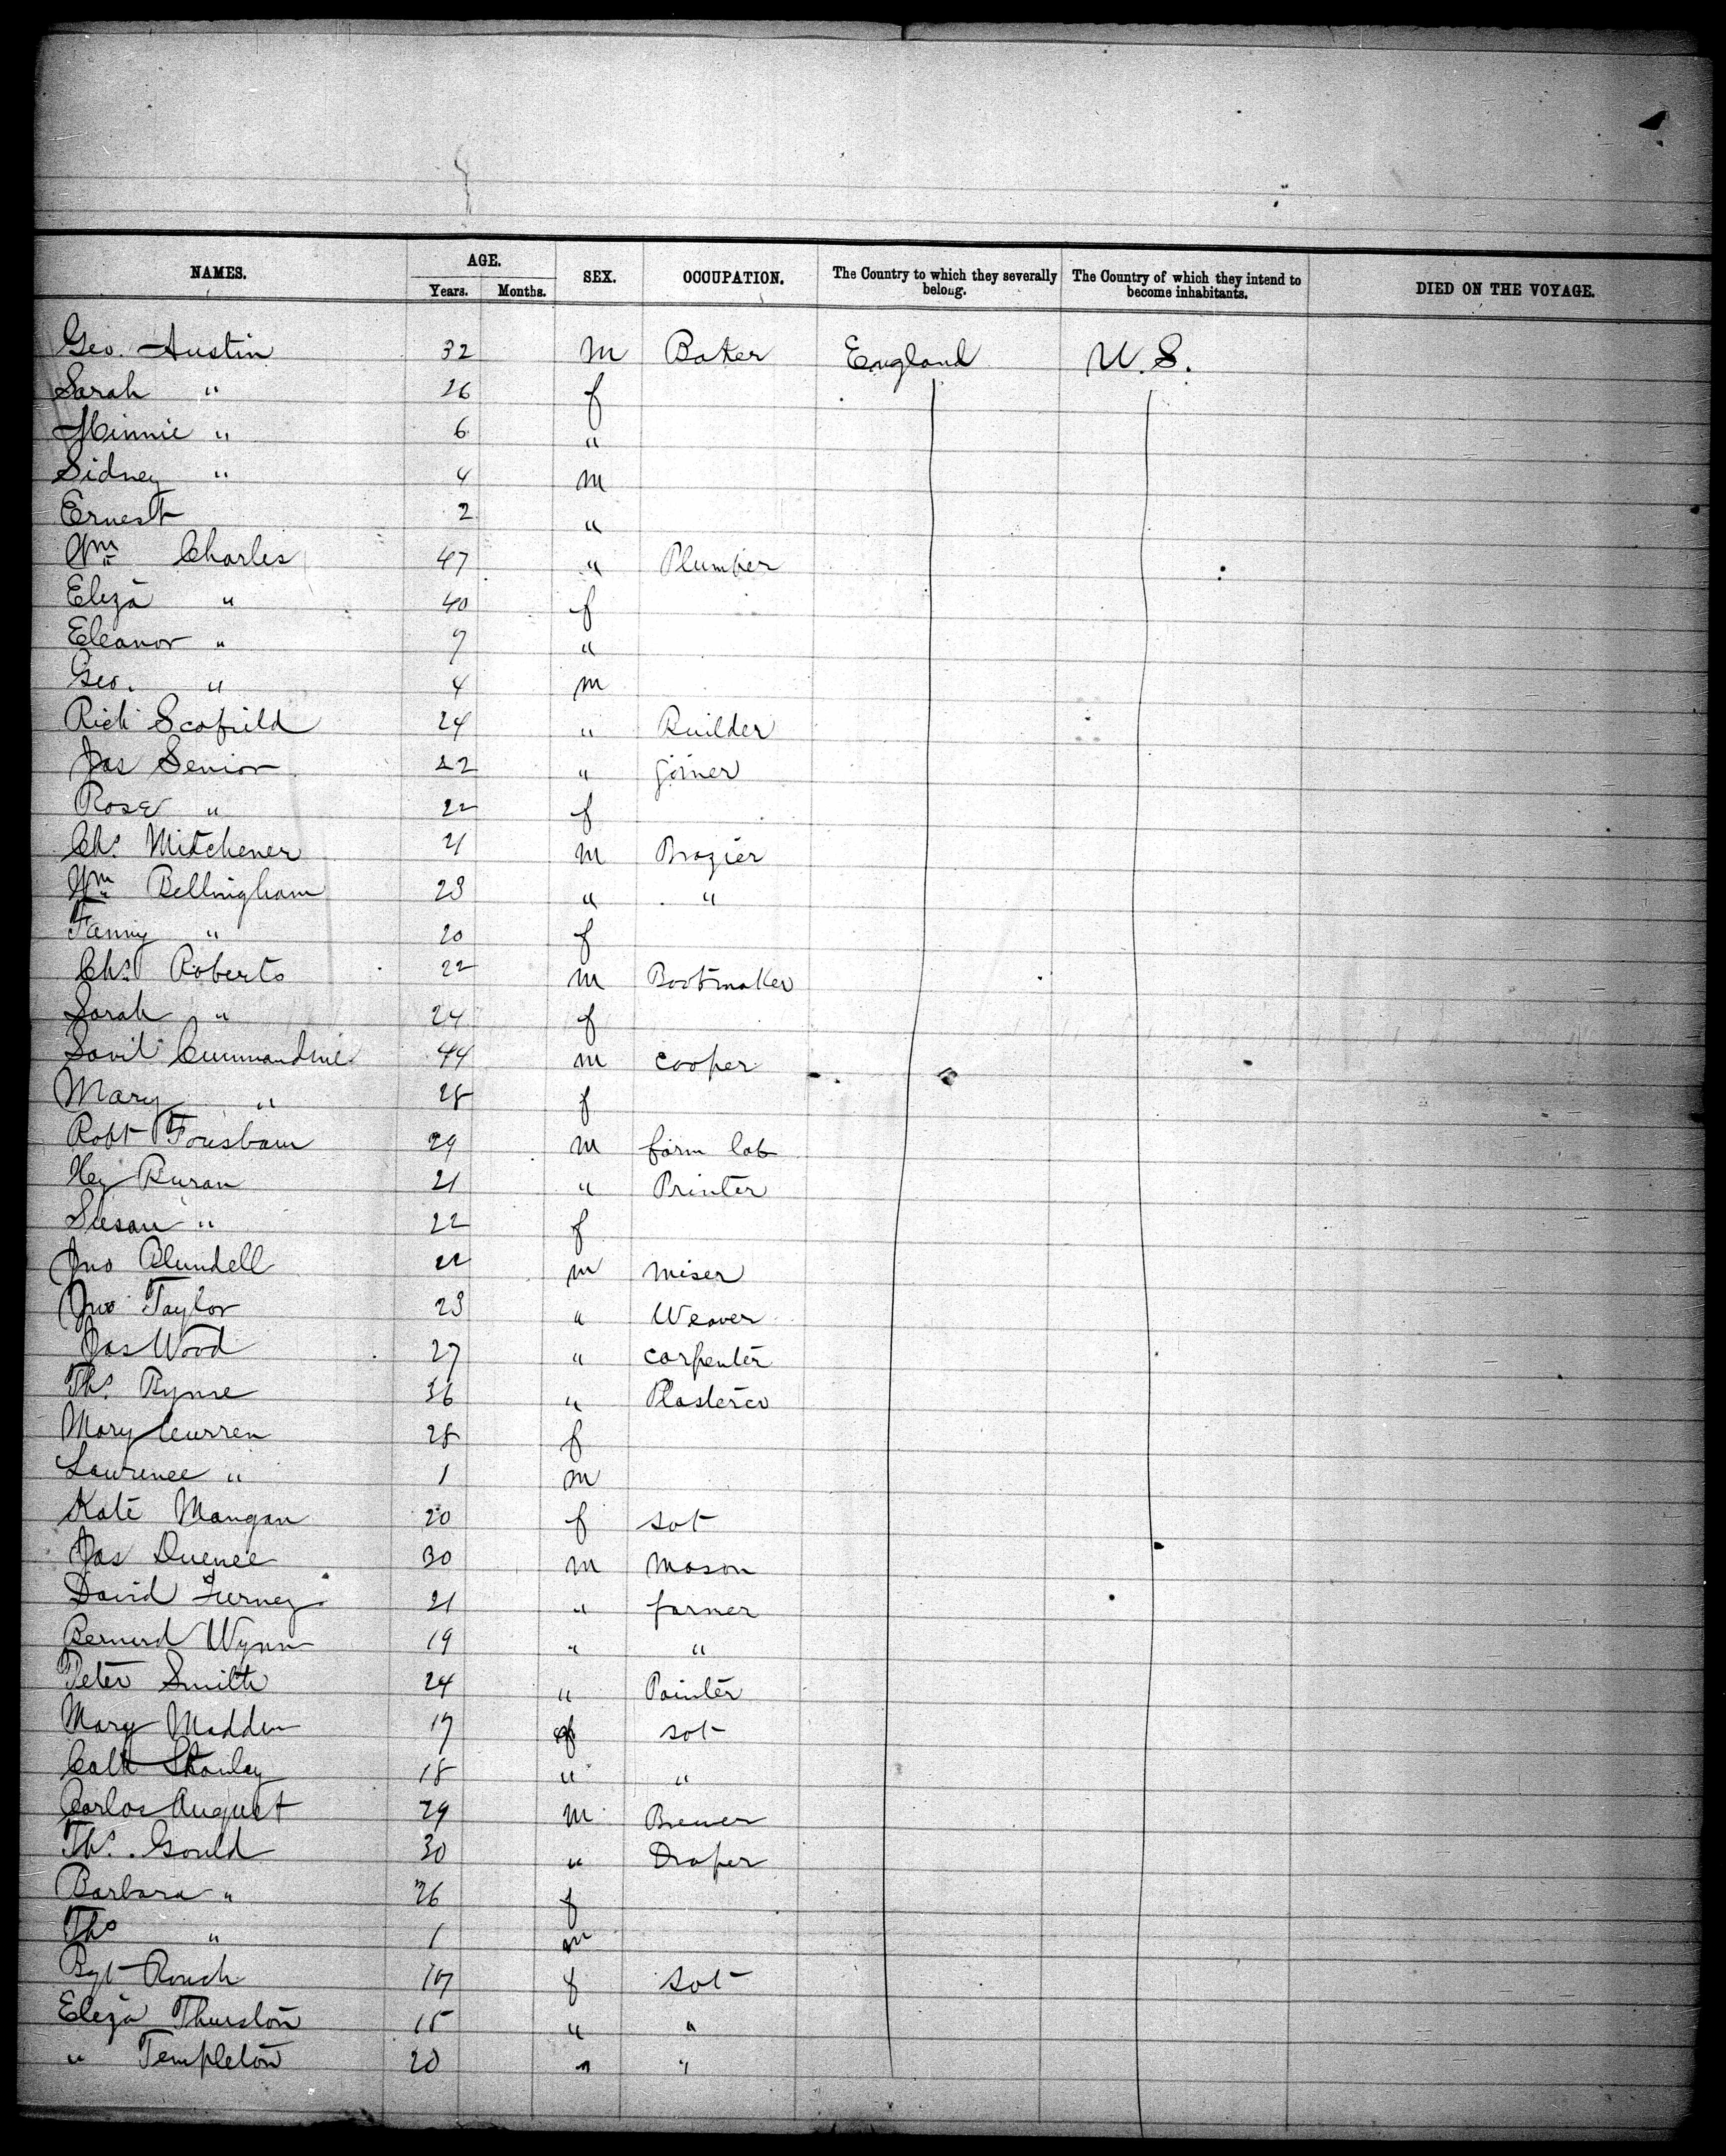 NAMES. AGE. SEX. OCCUPATION. The Country to which they severally belong. The Country of which they intend to become inhabitants. DIED ON THE VOYAGE.
Years. Months.
Geo. Austin 32 m Baker England U.S.
Sarah " 26 f
Minnie " 6 "
Sidney " 4 m
Ernest 2 "
Wm Charles 47 " Plumber
Eliza " 40 f
Eleanor " 9 "
Geo. " 4 m
Rich Scofield 24 " Builder
Jas Senior 22 " joiner
Rose " 22 f
Chs. Mitchener 21 m Brazier
Wm Bellingham 23 " "
Fanny " 20 f
Chs. Roberts 22 m Bootmaker
Sarah " 24 f
44 m cooper
Mary " 28 f
Robt 29 m farm lab
Hy Buran 21 " Printer
Susan " 22 f
Jno Blundell 22 m miser
Jno Taylor 23 " Weaver
Jas Wood 27 " carpenter
Ths. Byrne 36 " Plasterer
Mary Curren 28 f
Lawrence " 1 m
Kate Mangan 20 f sot
Jas 30 m mason
David 21 " farmer
Bernerd Wynn 19 " "
Peter Smith 24 " Painter
Mary Madden 19 f sot
Cath Stanley 18 " "
Carlos August 29 m Brewer
Ths. Gould 30 " Draper
Barbara " 26 f
Ths " 1 m
Bgt Roach 19 f sot
Eliza Thurston 15 " "
" Templeton 20 " "